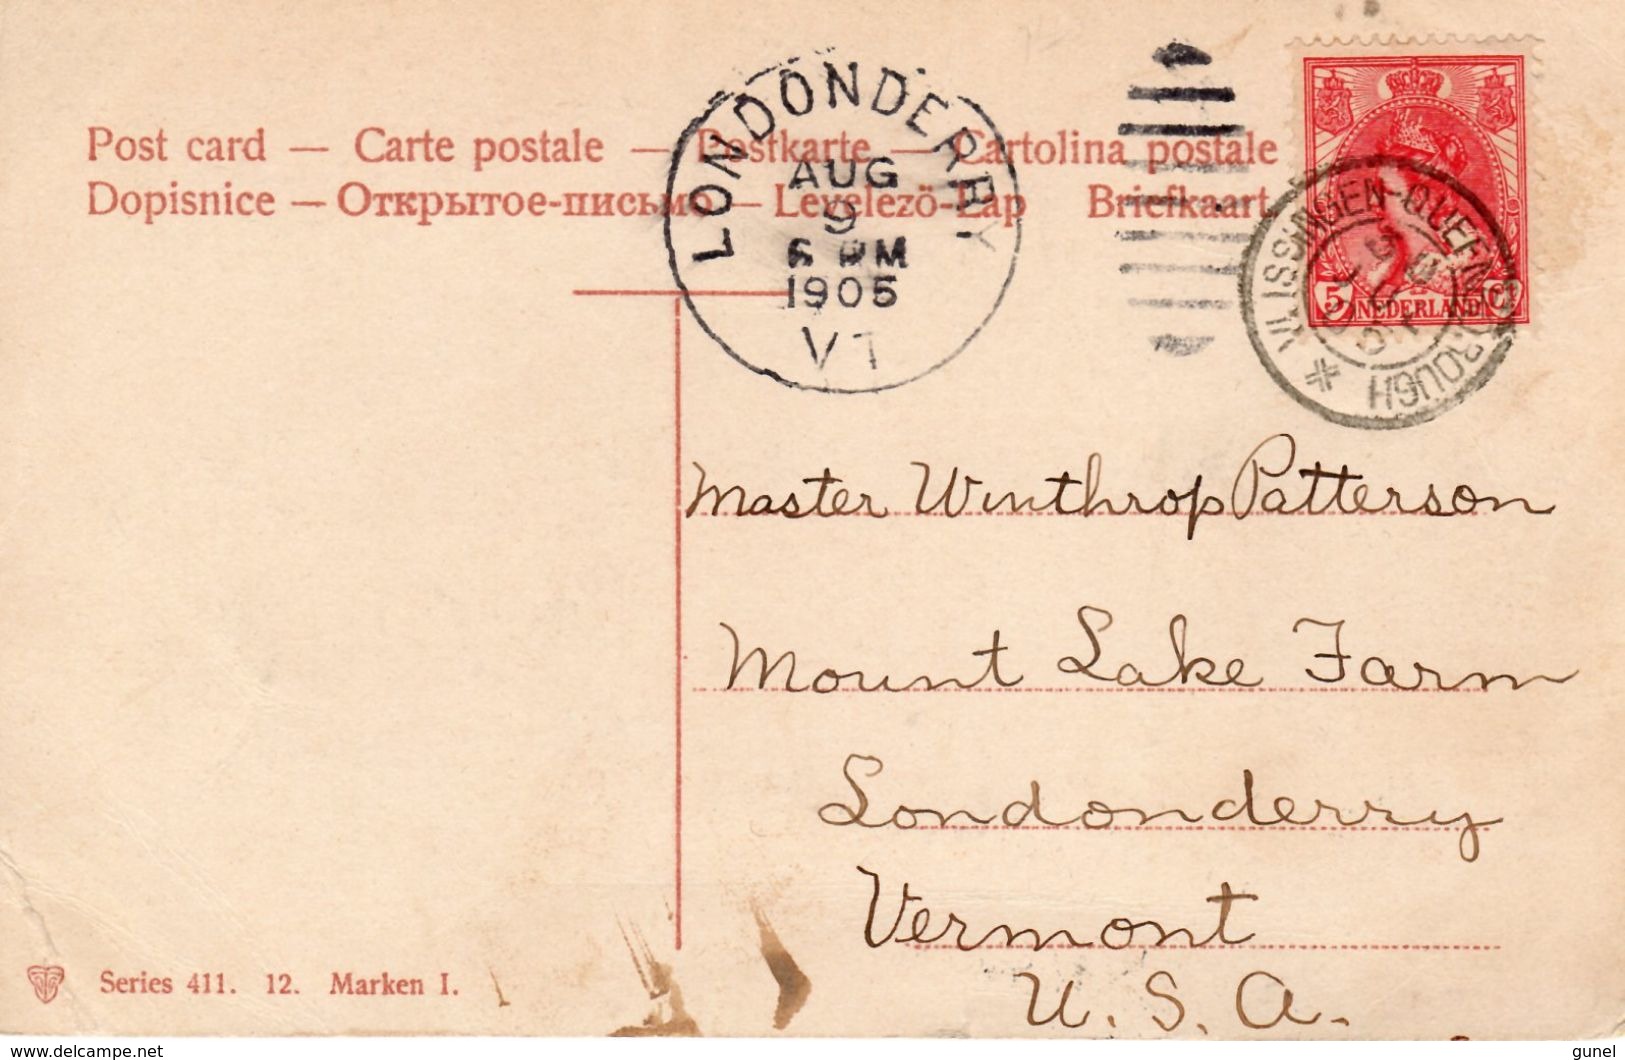 Post card — Carte postale — Postkarte — Cartolina postale
Dopisnice — Открытое-письмо — Levelezö-Lap Briefkaart
LONDONDERRY
AUG
9
6 PM
1905
VT
VLISSINGEN-QUEENBOROUGH
5 NEDERLAND
Master Winthrop Patterson
Mount Lake Farm
Londonderry
Vermont
U. S. A.
Series 411. 12. Marken I.
www.delcampe.net
gunel